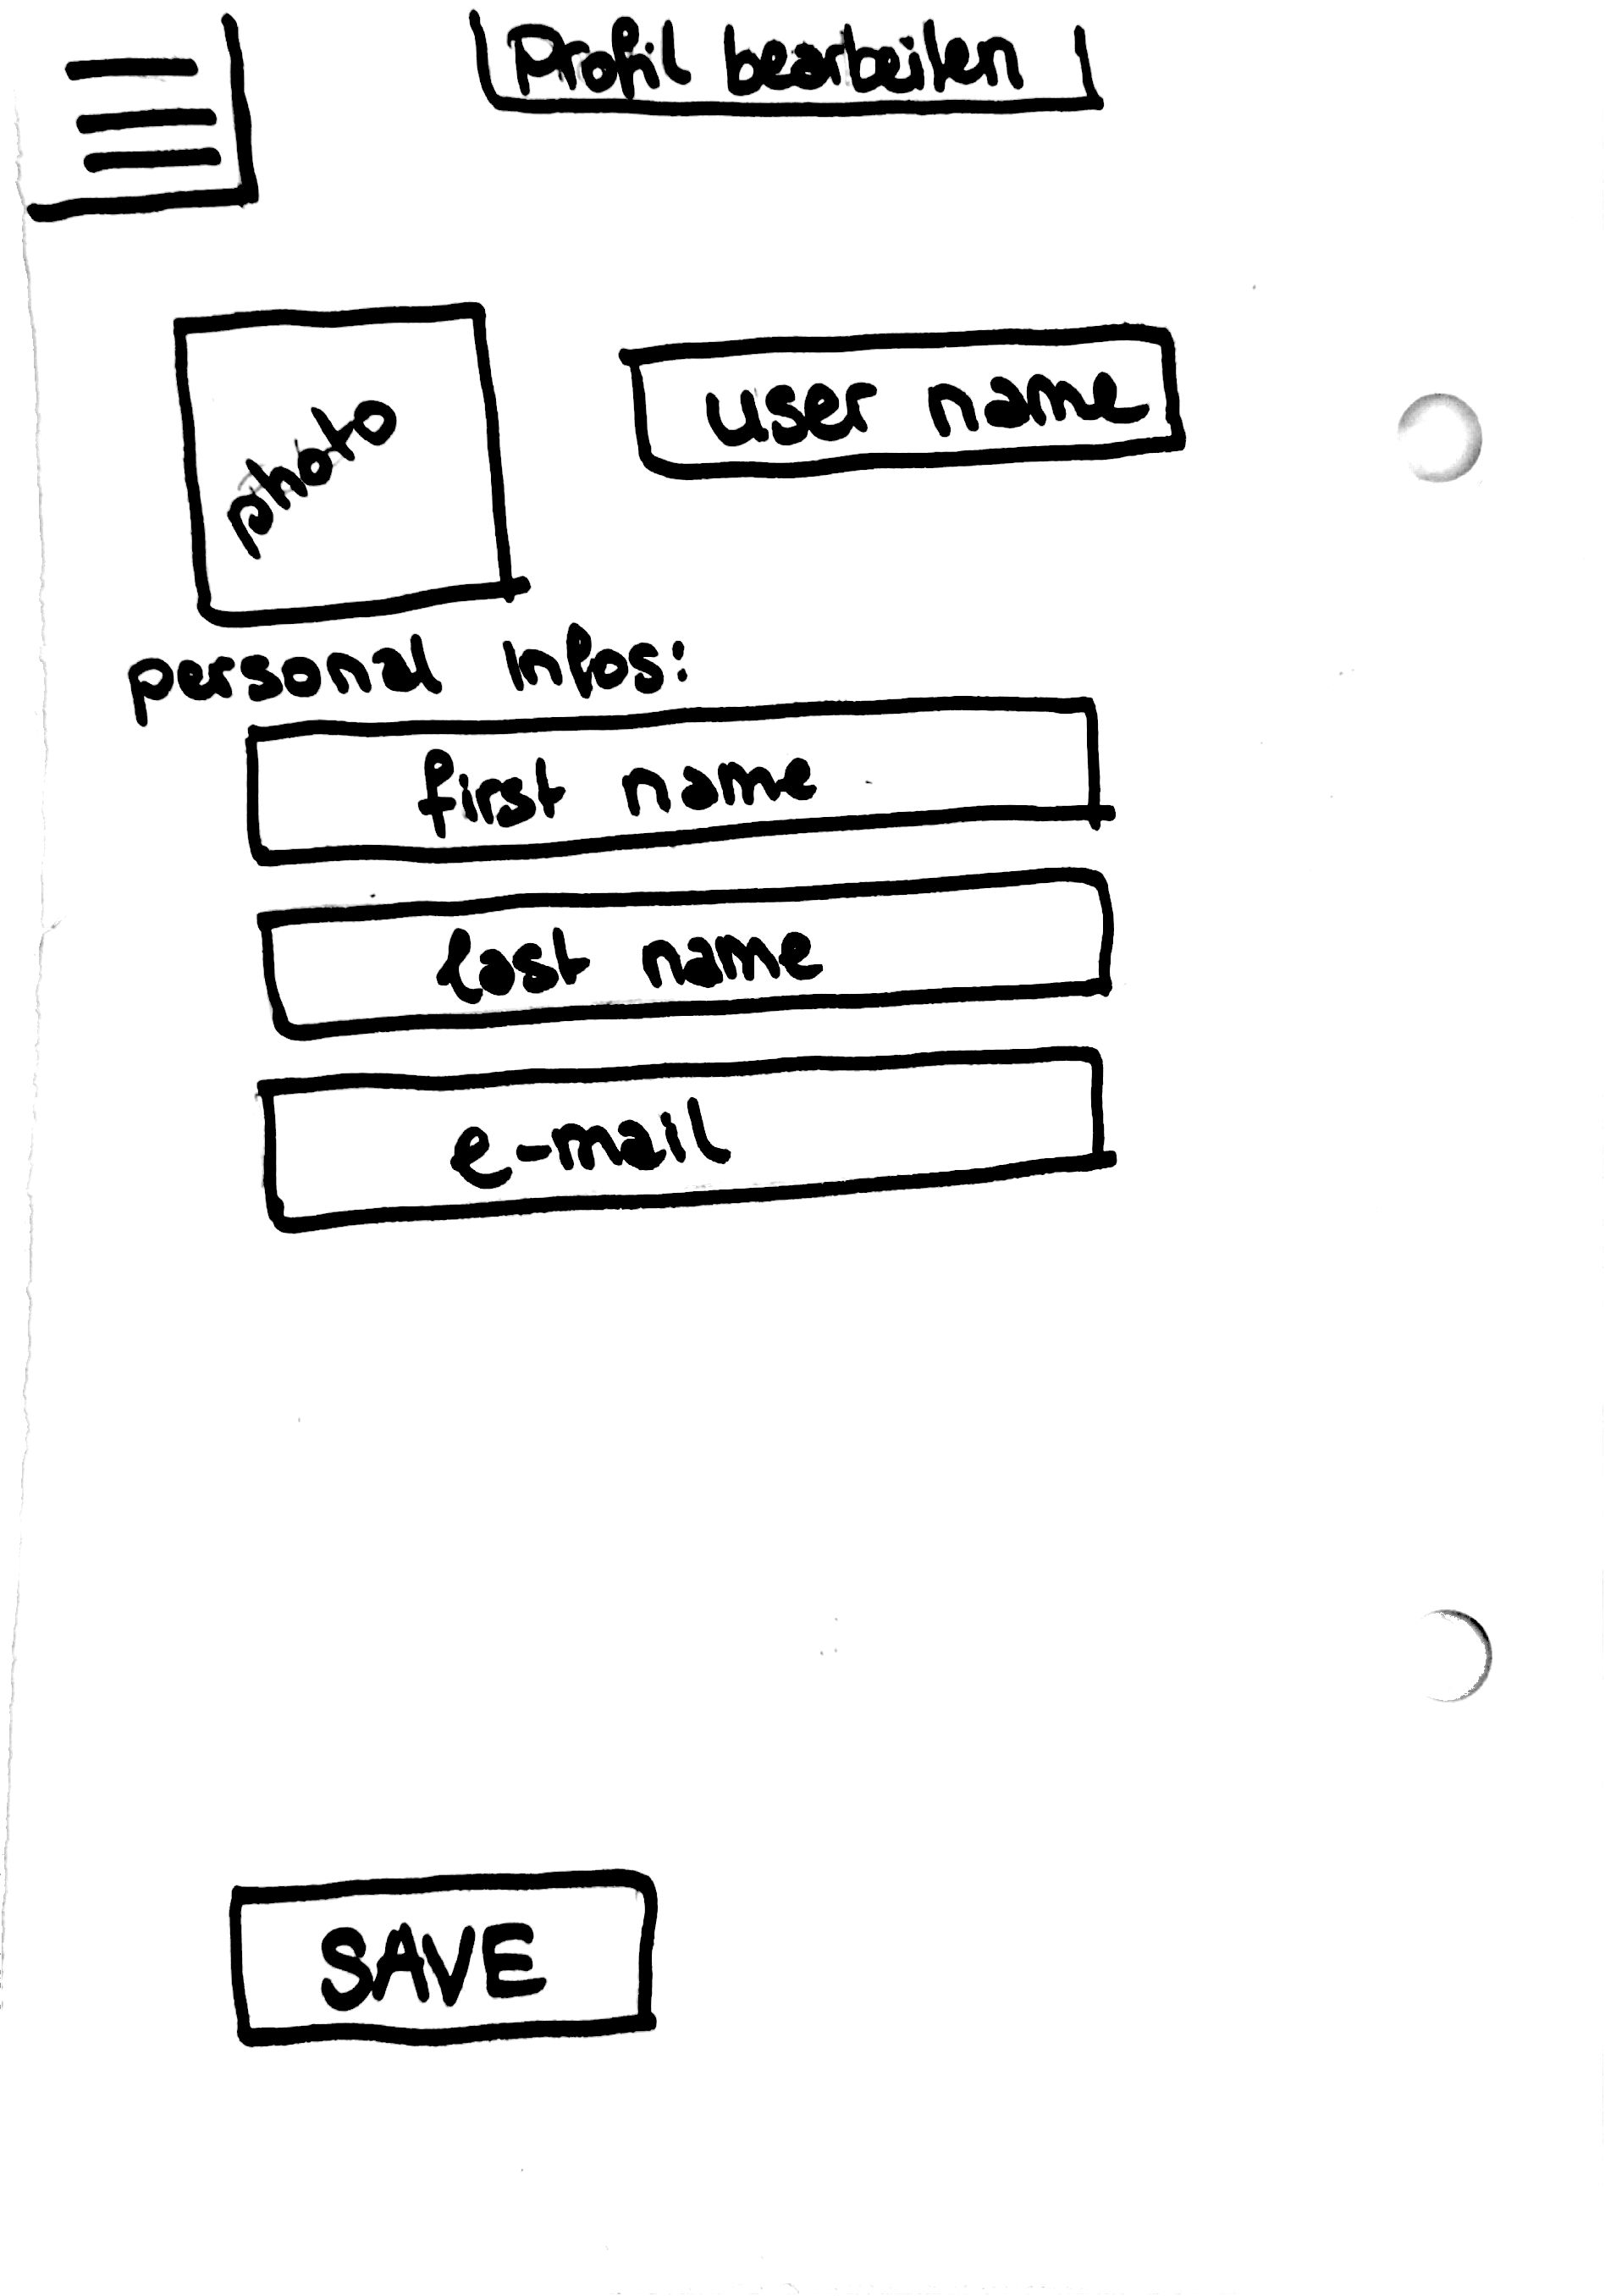 Profil bearbeiten
photo
user name
personal Infos:
first name
last name
e-mail
SAVE